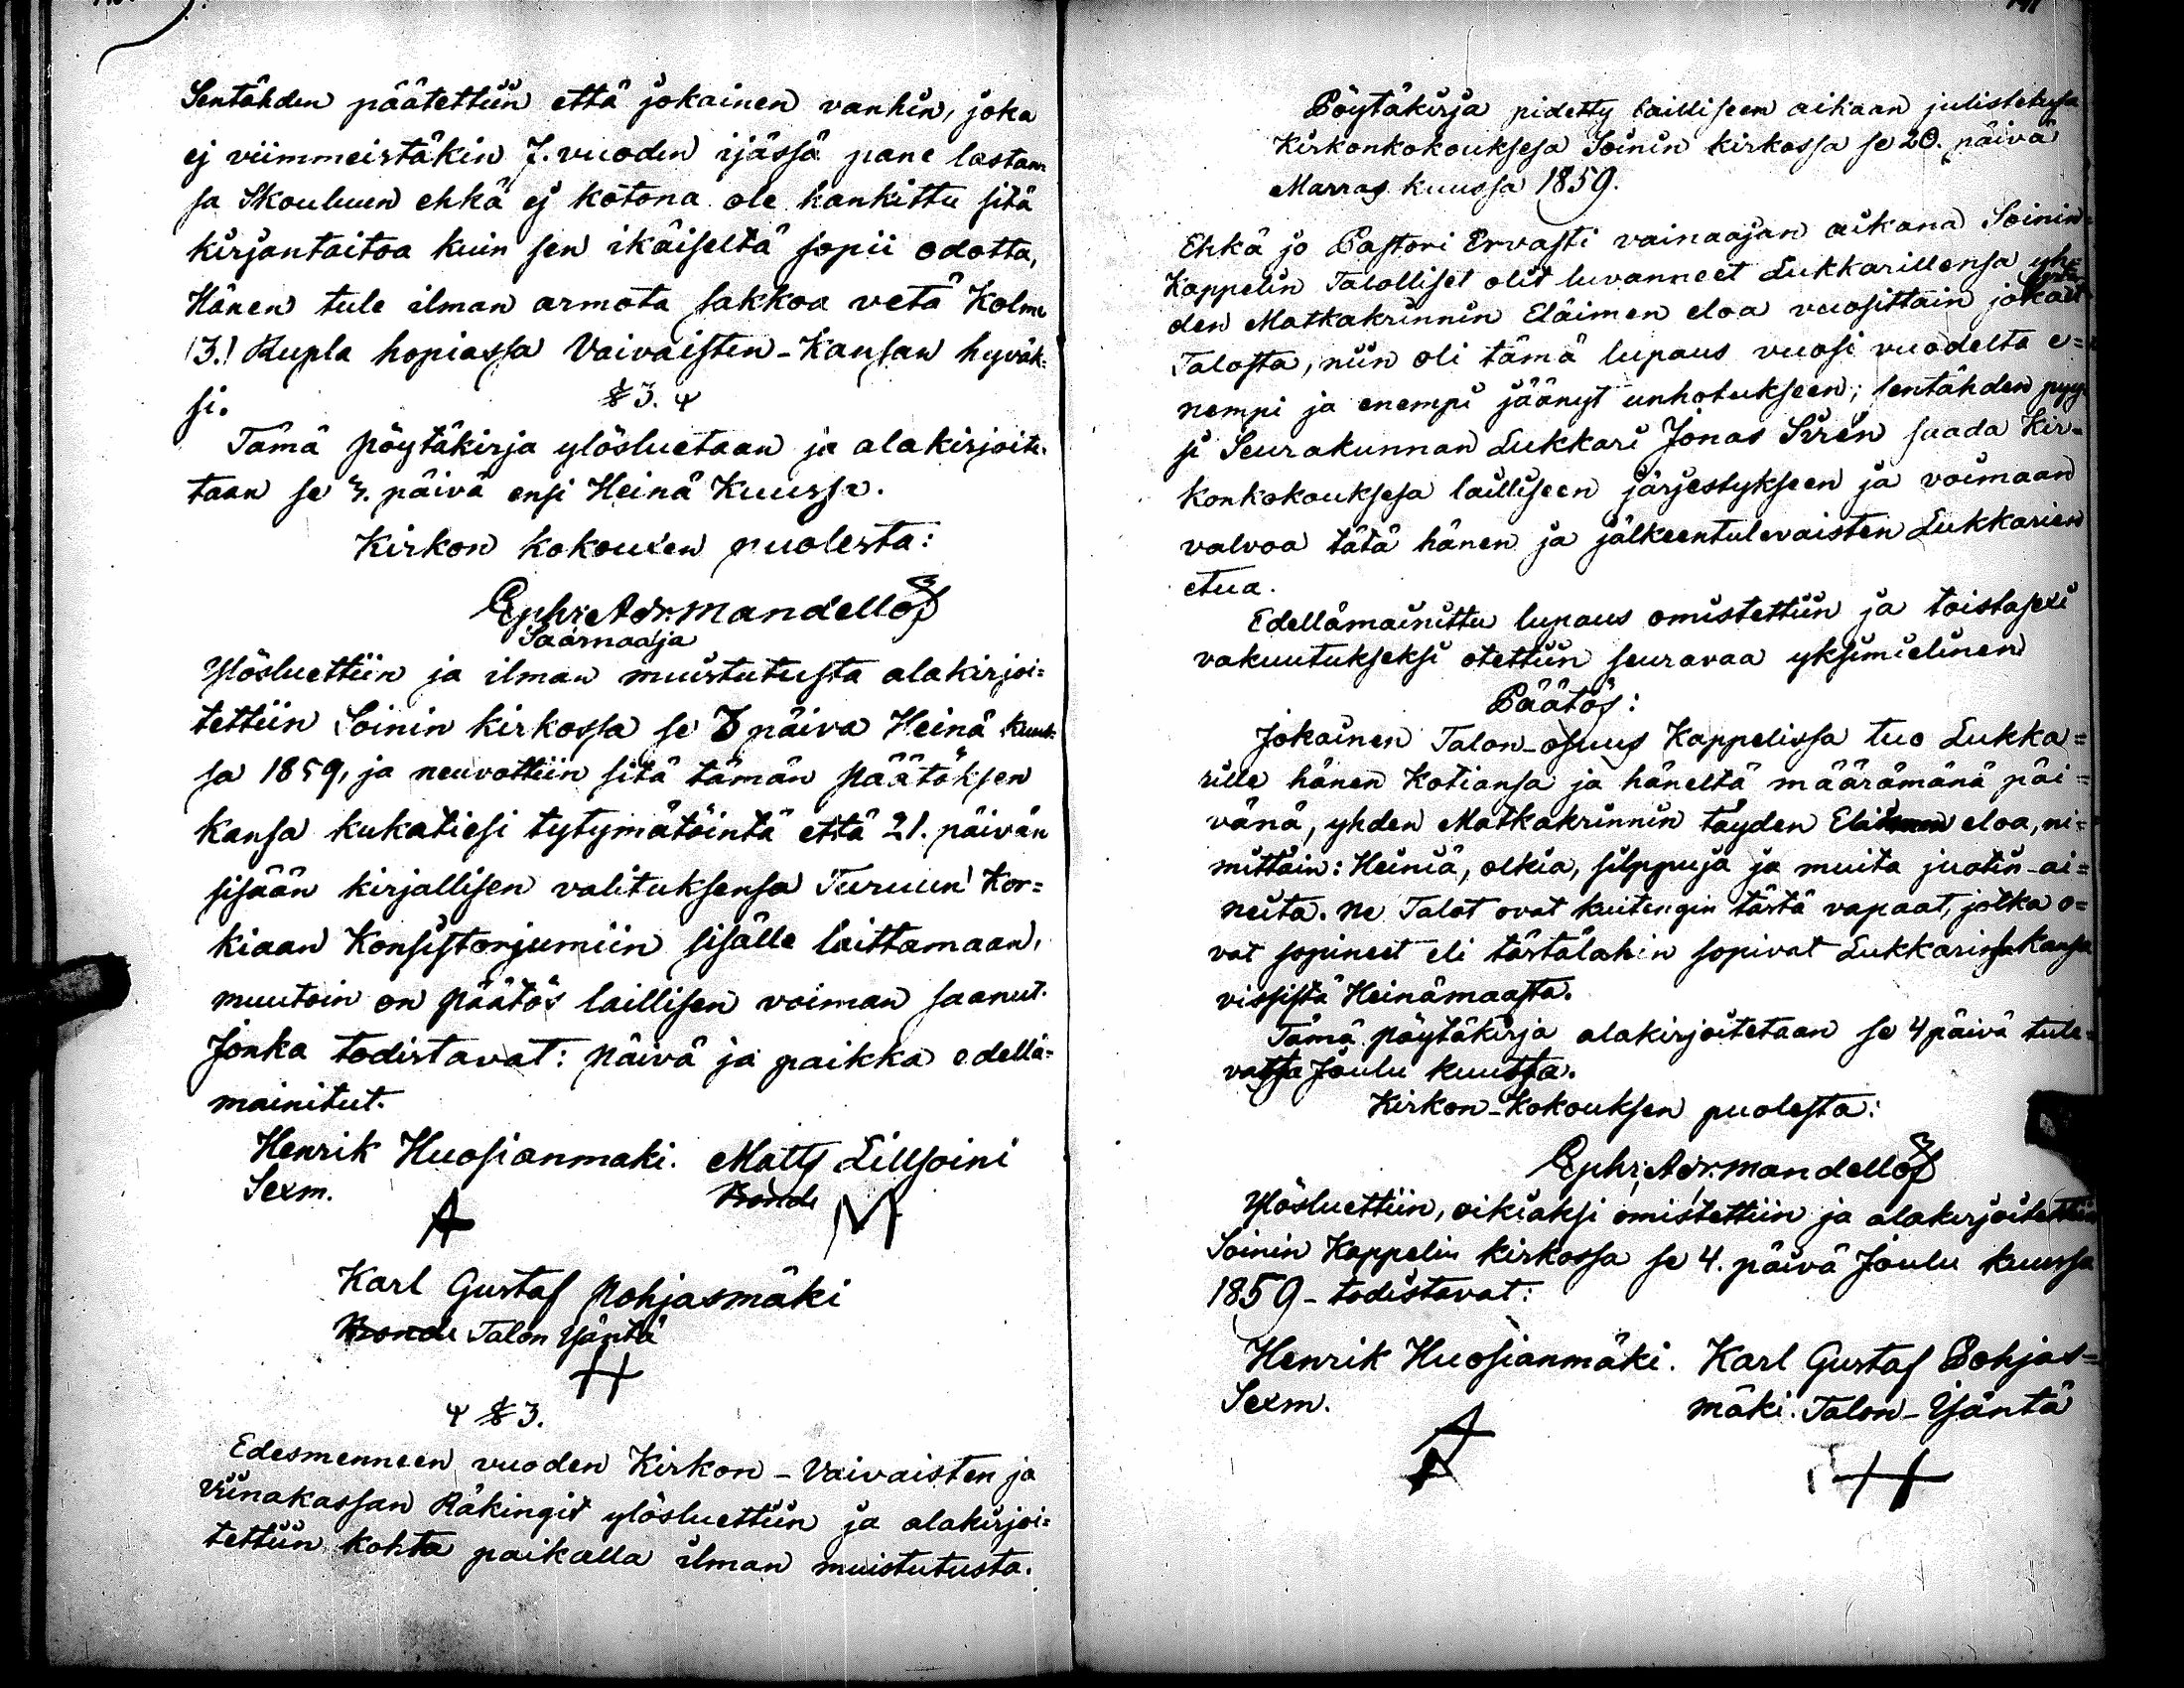 Sentähden päätettiin että jokainen vanhin, joka
ej viimmeistäkin 7. vuoden ijässä pane lastan=
sa Skouluun ehkä ej kotona ole hankittu sitä
kirjantaitoa kuin sen ikäiseltä sopii odotta,
Hänen tule ilman armota sakkoa vetä Kolme
(3.) Rupla hopiassa Vaivaisten-Kansan hyväk=
si.
§ 3. 4
Tämä pöytäkirja ylösluetaan ja alakirjoite=
taan se 3. päivä ensi Heinä Kuussa.
Kirkon kokouxen puolesta:
Ephr: Adr. Mandellöf
Saarnaaja
Ylösluettiin ja ilman muistutusta alakirjoi=
tettiin Soinin kirkossa se 3 päiva Heinä kuus=
sa 1859, ja neuvottiin sitä tämän päätöksen
kansa kukatiesi tytymätöintä että 21. päivän
sisään kirjallisen valituksensa Turuun Kor=
kiaan Konsistorjumiin sisälle laittamaan,
muutoin on päätös laillisen voiman saanut.
Jonka todistavat: päivä ja paikka edellä=
mainitut.
Henrik Huosianmaki. Matts Lillsoini
Sexm. Bonde
A M
Karl Gustaf Pohjasmäki
Bonde Talon Ysäntä
H
4 § 3.
Edesmenneen vuoden Kirkon-Vaivaisten ja
viinakassan Räkingit ylösluettiin ja alakirjoi=
tettiin kohta paikalla ilman muistutusta.
Pöytäkirja pidetty lailliseen aikaan julistetussa
Kirkonkokouksesa Soinin kirkossa se 20. päivä
Marras kuussa 1859.
Ehkä jo Pastori Ervasti vainaajan aikana Soinin
Kappelin Talolliset olit luvanneet Lukkarillensa yh=
den Matkakrinnin Eläimen eloa vuosittain joka
Talosta, niin oli tämä lupaus vuosi vuodelta e=
nempi ja enempi jäänyt unhotukseen; sentähden pyy
si Seurakunnan Lukkari Jonas Sirén saada Kir=
konkokouksesa lailliseen järjestykseen ja voimaan
valvoa tätä hänen ja jälkeentulevaisten Lukkarien
etua.
Edellämainittu lupaus omistettiin ja toistasexi
vakuutukseksi otettiin seuravaa yksimielinen
Päätös:
Jokainen Talon-osuus Kappelissa tuo Lukka=
rille hänen Kotiansa ja häneltä määrämänä päi=
vänä, yhden Matkakrinnin täyden Eläimen eloa, ni=
mittäin: Heiniä, olkia, silppuja ja muita juotin-ai=
neita. Ne Talot ovat kuitengin tästä vapaat, jotka o=
vat sopineet eli tästälahin sopivat Lukkarinsa kansa
vissistä Heinämaasta.
Tämä pöytäkirja alakirjoitetaan se 4 päivä tule=
vassa Joulu kuussa.
Kirkon-Kokouksen puolesta:
Ephr: Adr. Mandellöf
Ylösluettiin, oikiaksi omistettiin ja alakirjoitettiin
Soinin Kappelin kirkossa se 4. päivä Joulu kuussa
1859 - todistavat:
Henrik Huosianmäki. Karl Gustaf Pohjas=
Sexm. mäki. Talon-Ysäntä
A H